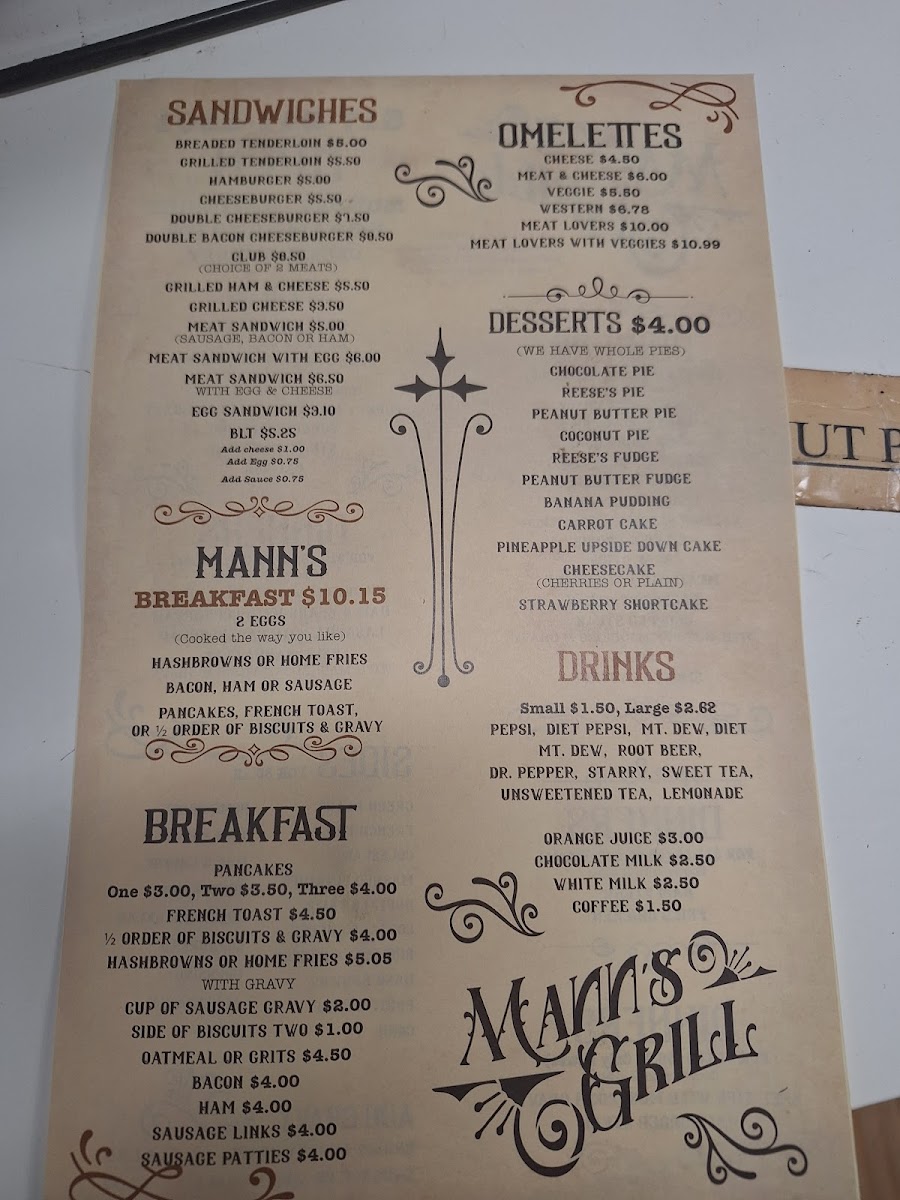 SANDWICHES
BREADED TENDERLOIN
GRILLED TENDERLOIN $5.50
HAMBURGER $5.00
CHEESEBURGER $5.50
DOUBLE CHEESEBURGER $7.50
DOUBLE BACON CHEESEBURGER
CLUB
(CHOICE OF 2 MEATS)
GRILLED HAM & CHEESE $5.50
GRILLED CHEESE $3.50
MEAT SANDWICH $5.00
(SAUSAGE, BACON OR HAM)
MEAT SANDWICH WITH EGG $6.00
MEAT SANDWICH $6.50
WITH EGG & CHEESE
EGG SANDWICH $3.10
BLT $5.25
Add cheese $1.00
Add Egg $0.75
Add Sauce $0.75
MANN'S
BREAKFAST $10.15
2 EGGS
(Cooked the way you like)
HASHBROWNS OR HOME FRIES
BACON, HAM OR SAUSAGE
PANCAKES, FRENCH TOAST,
OR ½ ORDER OF BISCUITS & GRAVY
BREAKFAST
PANCAKES
One $3.00, Two $3.50, Three $4.00
FRENCH TOAST $4.50
½ ORDER OF BISCUITS & GRAVY $4.00
HASHBROWNS OR HOME FRIES $5.05
WITH GRAVY
CUP OF SAUSAGE GRAVY $2.00
SIDE OF BISCUITS TWO $1.00
OATMEAL OR GRITS $4.50
BACON $4.00
HAM $4.00
SAUSAGE LINKS $4.00
SAUSAGE PATTIES $4.00
OMELETTES
CHEESE $4.50
MEAT & CHEESE $6.00
VEGGIE $5.50
WESTERN $6.78
MEAT LOVERS $10.00
MEAT LOVERS WITH VEGGIES $10.99
DESSERTS $4.00
(WE HAVE WHOLE PIES)
CHOCOLATE PIE
REESE'S PIE
PEANUT BUTTER PIE
COCONUT PIE
REESE'S FUDGE
PEANUT BUTTER FUDGE
BANANA PUDDING
CARROT CAKE
PINEAPPLE UPSIDE DOWN CAKE
CHEESECAKE
(CHERRIES OR PLAIN)
STRAWBERRY SHORTCAKE
DRINKS
Small $1.50, Large $2.62
PEPSI, DIET PEPSI, MT. DEW, DIET
MT. DEW, ROOT BEER,
DR. PEPPER, STARRY, SWEET TEA,
UNSWEETENED TEA, LEMONADE
ORANGE JUICE $3.00
CHOCOLATE MILK $2.50
WHITE MILK $2.50
COFFEE $1.50
MANN'S
GRILL
UT